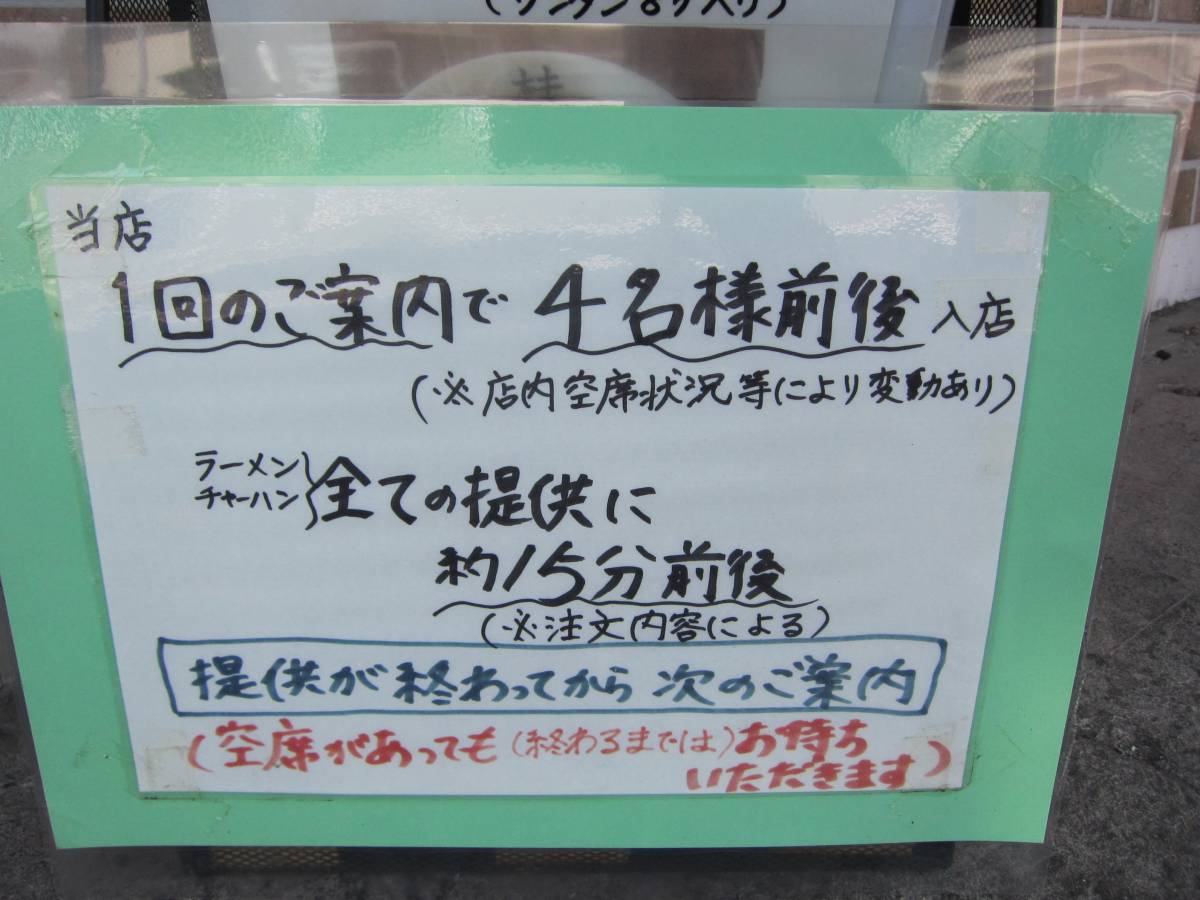 (ワンタン8ケ入り)
当店
1回のご案内で 4名様前後 入店
(※店内空席状況等により変動あり)
ラーメン
チャーハン
全ての提供に
約15分前後
(※注文内容による)
提供が終わってから 次のご案内
(空席があっても(終わるまでは)お待ち
いただきます)